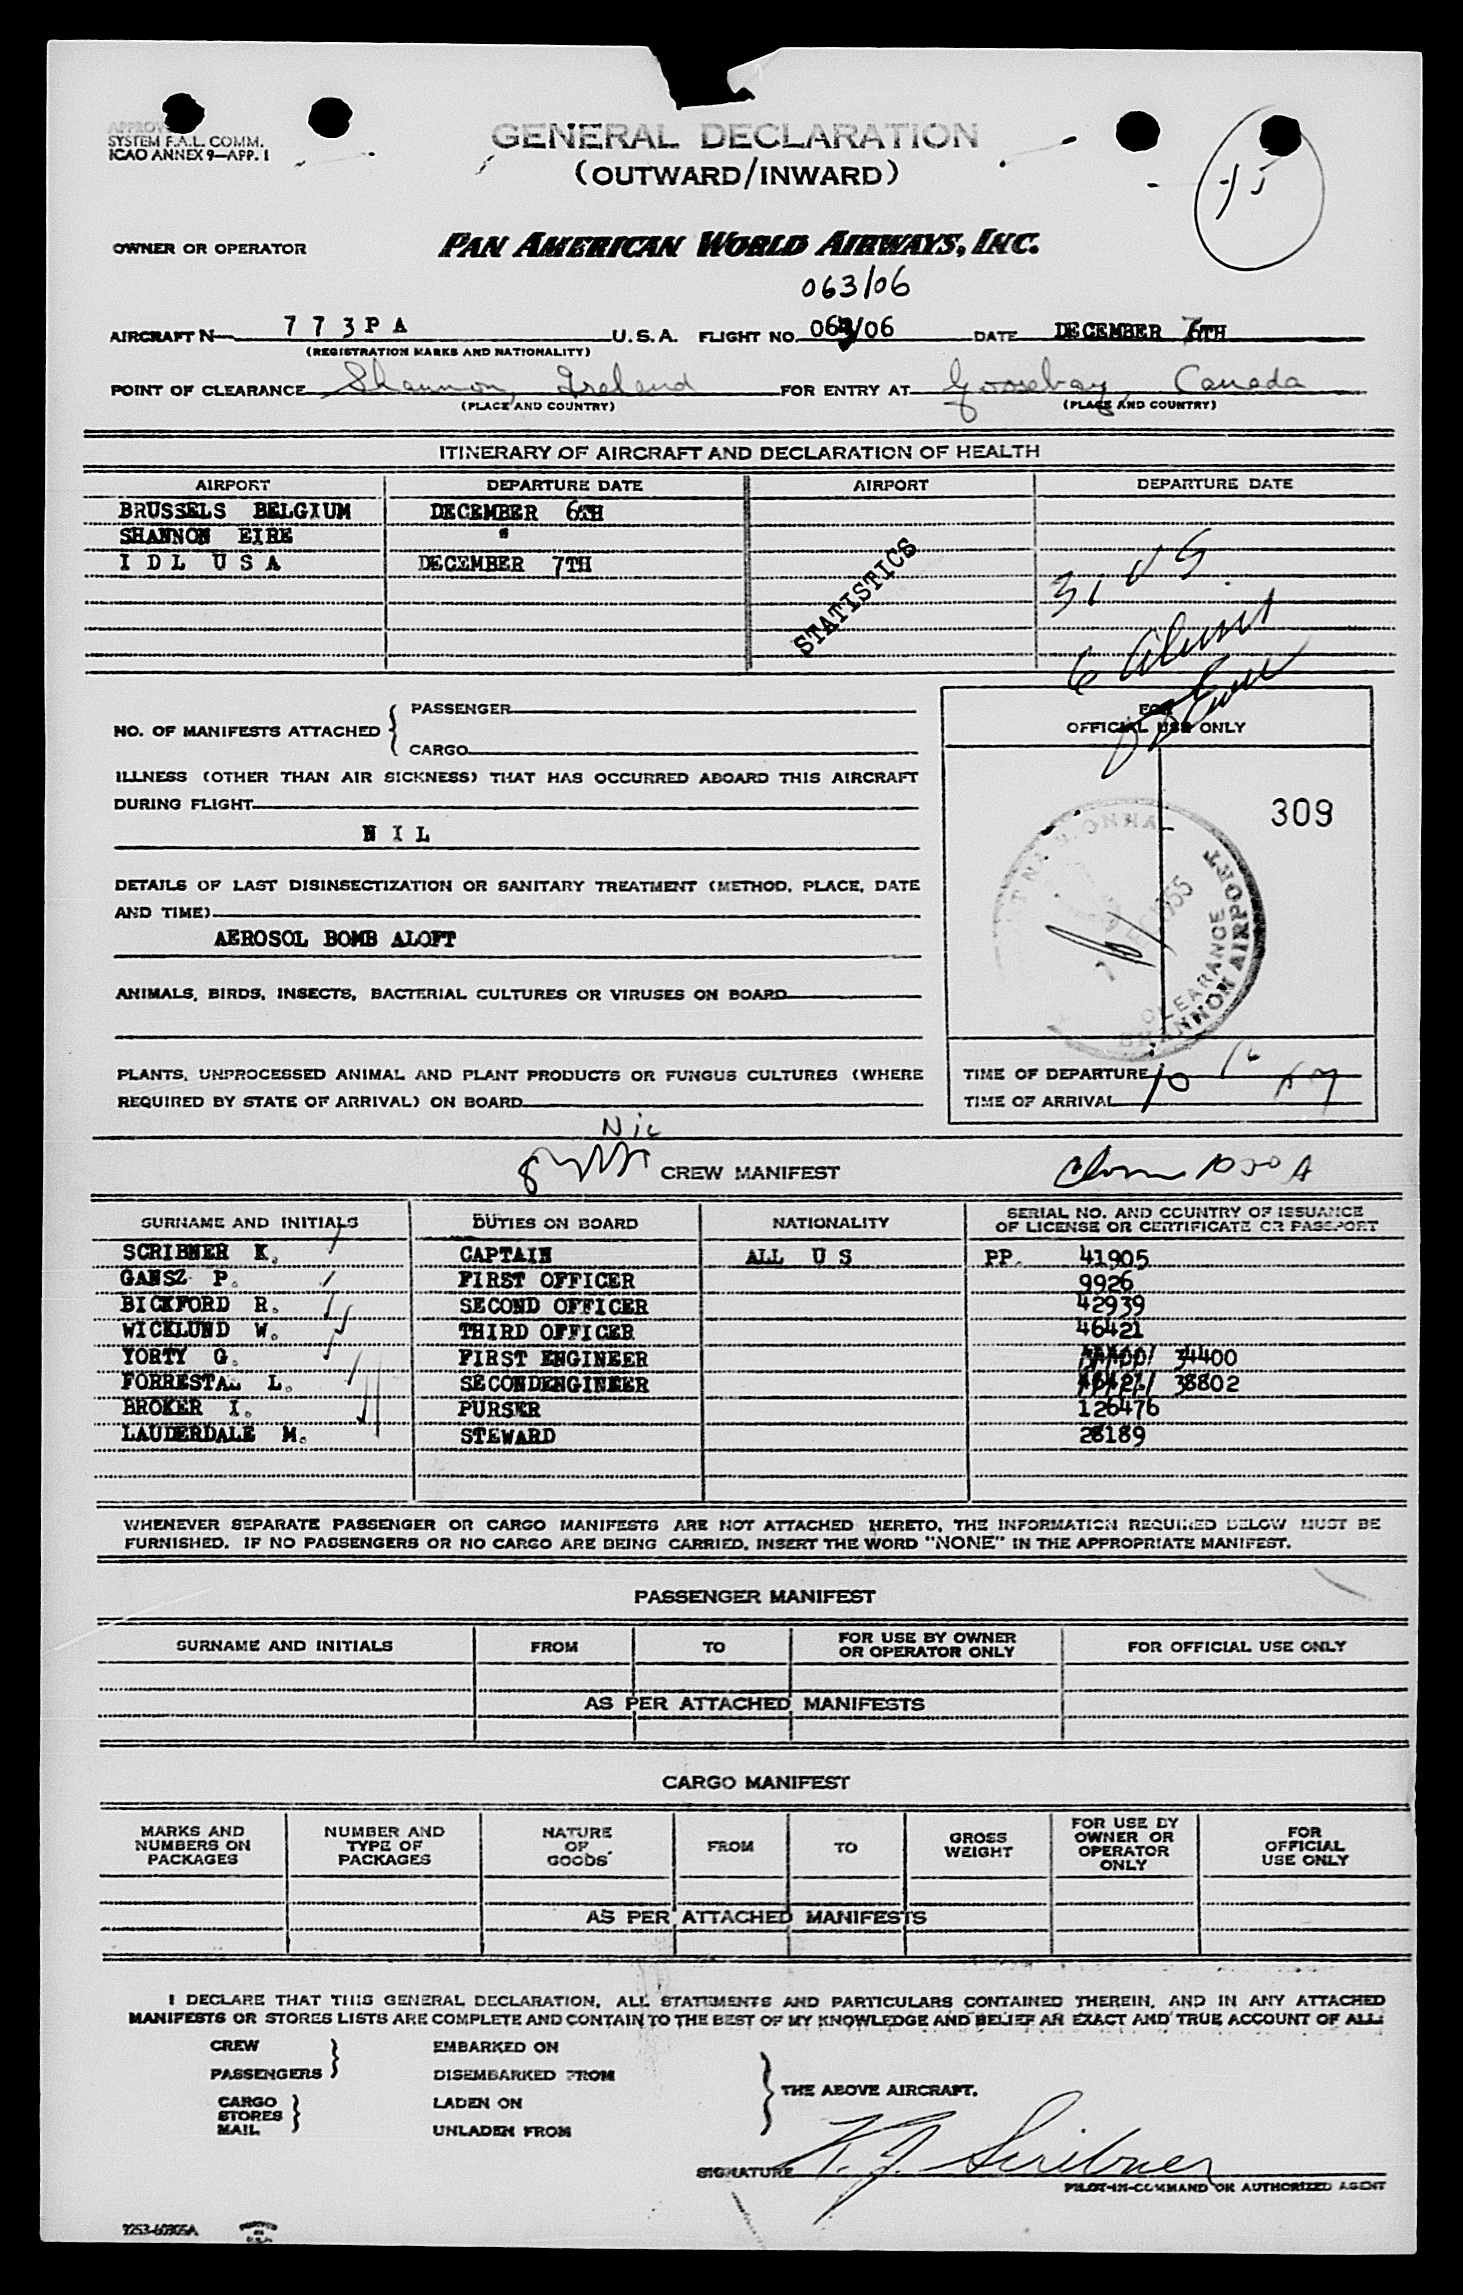 SYSTEM F.A.L. COMM.
ICAO ANNEX 9—APP. I
GENERAL DECLARATION
(OUTWARD/INWARD)
OWNER OR OPERATOR PAN AMERICAN WORLD AIRWAYS, INC.
063/06
AIRCRAFT N 7 7 3 P A U.S.A. FLIGHT NO. 063/06 DATE DECEMBER 7TH
(REGISTRATION MARKS AND NATIONALITY)
POINT OF CLEARANCE Shannon, Ireland FOR ENTRY AT Goosebay, Canada
(PLACE AND COUNTRY) (PLACE AND COUNTRY)
ITINERARY OF AIRCRAFT AND DECLARATION OF HEALTH
AIRPORT DEPARTURE DATE AIRPORT DEPARTURE DATE
BRUSSELS BELGIUM DECEMBER 6TH
SHANNON EIRE "
I D L U S A DECEMBER 7TH
STATISTICS
3 US
6
NO. OF MANIFESTS ATTACHED { PASSENGER
CARGO
FOR
OFFICIAL USE ONLY
ILLNESS (OTHER THAN AIR SICKNESS) THAT HAS OCCURRED ABOARD THIS AIRCRAFT
DURING FLIGHT
N I L
309
DETAILS OF LAST DISINSECTIZATION OR SANITARY TREATMENT (METHOD, PLACE, DATE
AND TIME)
AEROSOL BOMB ALOFT
CLEARANCE
SHANNON AIRPORT
ANIMALS, BIRDS, INSECTS, BACTERIAL CULTURES OR VIRUSES ON BOARD
PLANTS, UNPROCESSED ANIMAL AND PLANT PRODUCTS OR FUNGUS CULTURES (WHERE
REQUIRED BY STATE OF ARRIVAL) ON BOARD
Nil
TIME OF DEPARTURE
TIME OF ARRIVAL
CREW MANIFEST
SURNAME AND INITIALS DUTIES ON BOARD NATIONALITY SERIAL NO. AND COUNTRY OF ISSUANCE OF LICENSE OR CERTIFICATE OR PASSPORT
SCRIBNER K. CAPTAIN ALL U S PP. 41905
GANSZ P. FIRST OFFICER 9926
BICKFORD R. SECOND OFFICER 42939
WICKLUND W. THIRD OFFICER 46421
YORTY G. FIRST ENGINEER 34400
FORRESTAL L. SECONDENGINEER 38802
BROKER I. PURSER 126476
LAUDERDALE M. STEWARD 28189
WHENEVER SEPARATE PASSENGER OR CARGO MANIFESTS ARE NOT ATTACHED HERETO, THE INFORMATION REQUIRED BELOW MUST BE
FURNISHED. IF NO PASSENGERS OR NO CARGO ARE BEING CARRIED, INSERT THE WORD "NONE" IN THE APPROPRIATE MANIFEST.
PASSENGER MANIFEST
SURNAME AND INITIALS FROM TO FOR USE BY OWNER OR OPERATOR ONLY FOR OFFICIAL USE ONLY
AS PER ATTACHED MANIFESTS
CARGO MANIFEST
MARKS AND NUMBERS ON PACKAGES NUMBER AND TYPE OF PACKAGES NATURE OF GOODS FROM TO GROSS WEIGHT FOR USE BY OWNER OR OPERATOR ONLY FOR OFFICIAL USE ONLY
AS PER ATTACHED MANIFESTS
I DECLARE THAT THIS GENERAL DECLARATION, ALL STATEMENTS AND PARTICULARS CONTAINED THEREIN, AND IN ANY ATTACHED
MANIFESTS OR STORES LISTS ARE COMPLETE AND CONTAIN TO THE BEST OF MY KNOWLEDGE AND BELIEF AN EXACT AND TRUE ACCOUNT OF ALL:
CREW EMBARKED ON
PASSENGERS DISEMBARKED FROM
THE ABOVE AIRCRAFT.
CARGO LADEN ON
STORES
MAIL UNLADEN FROM
SIGNATURE K. J. Scribner
PILOT-IN-COMMAND OR AUTHORIZED AGENT